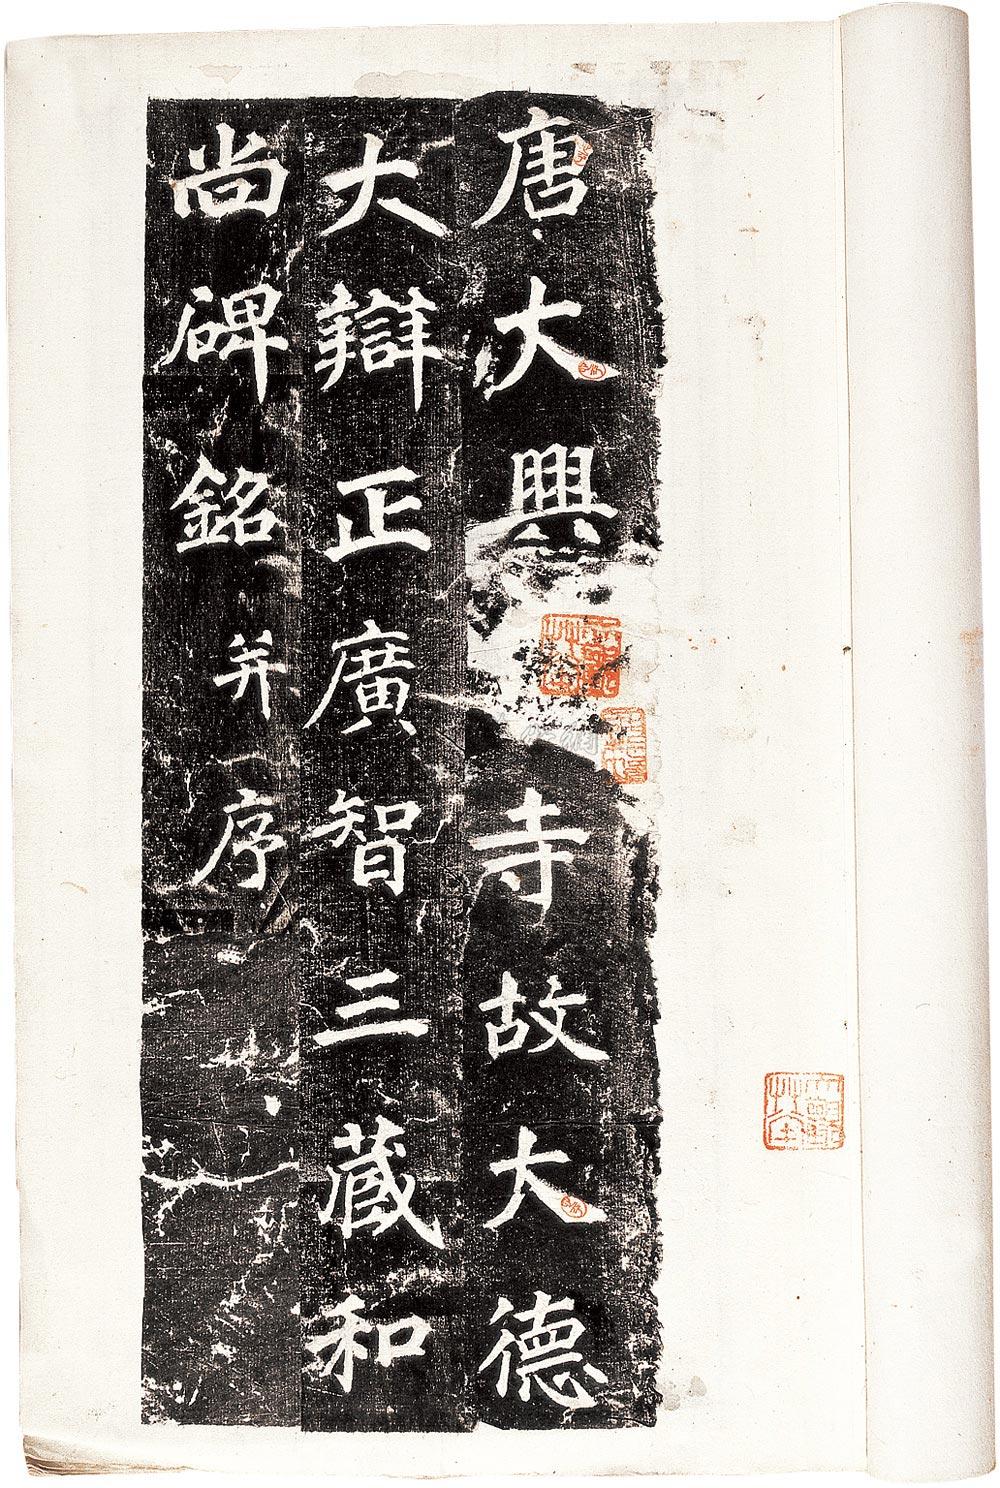 唐大興寺故大德
大辯正廣智三藏和
尚碑銘并序